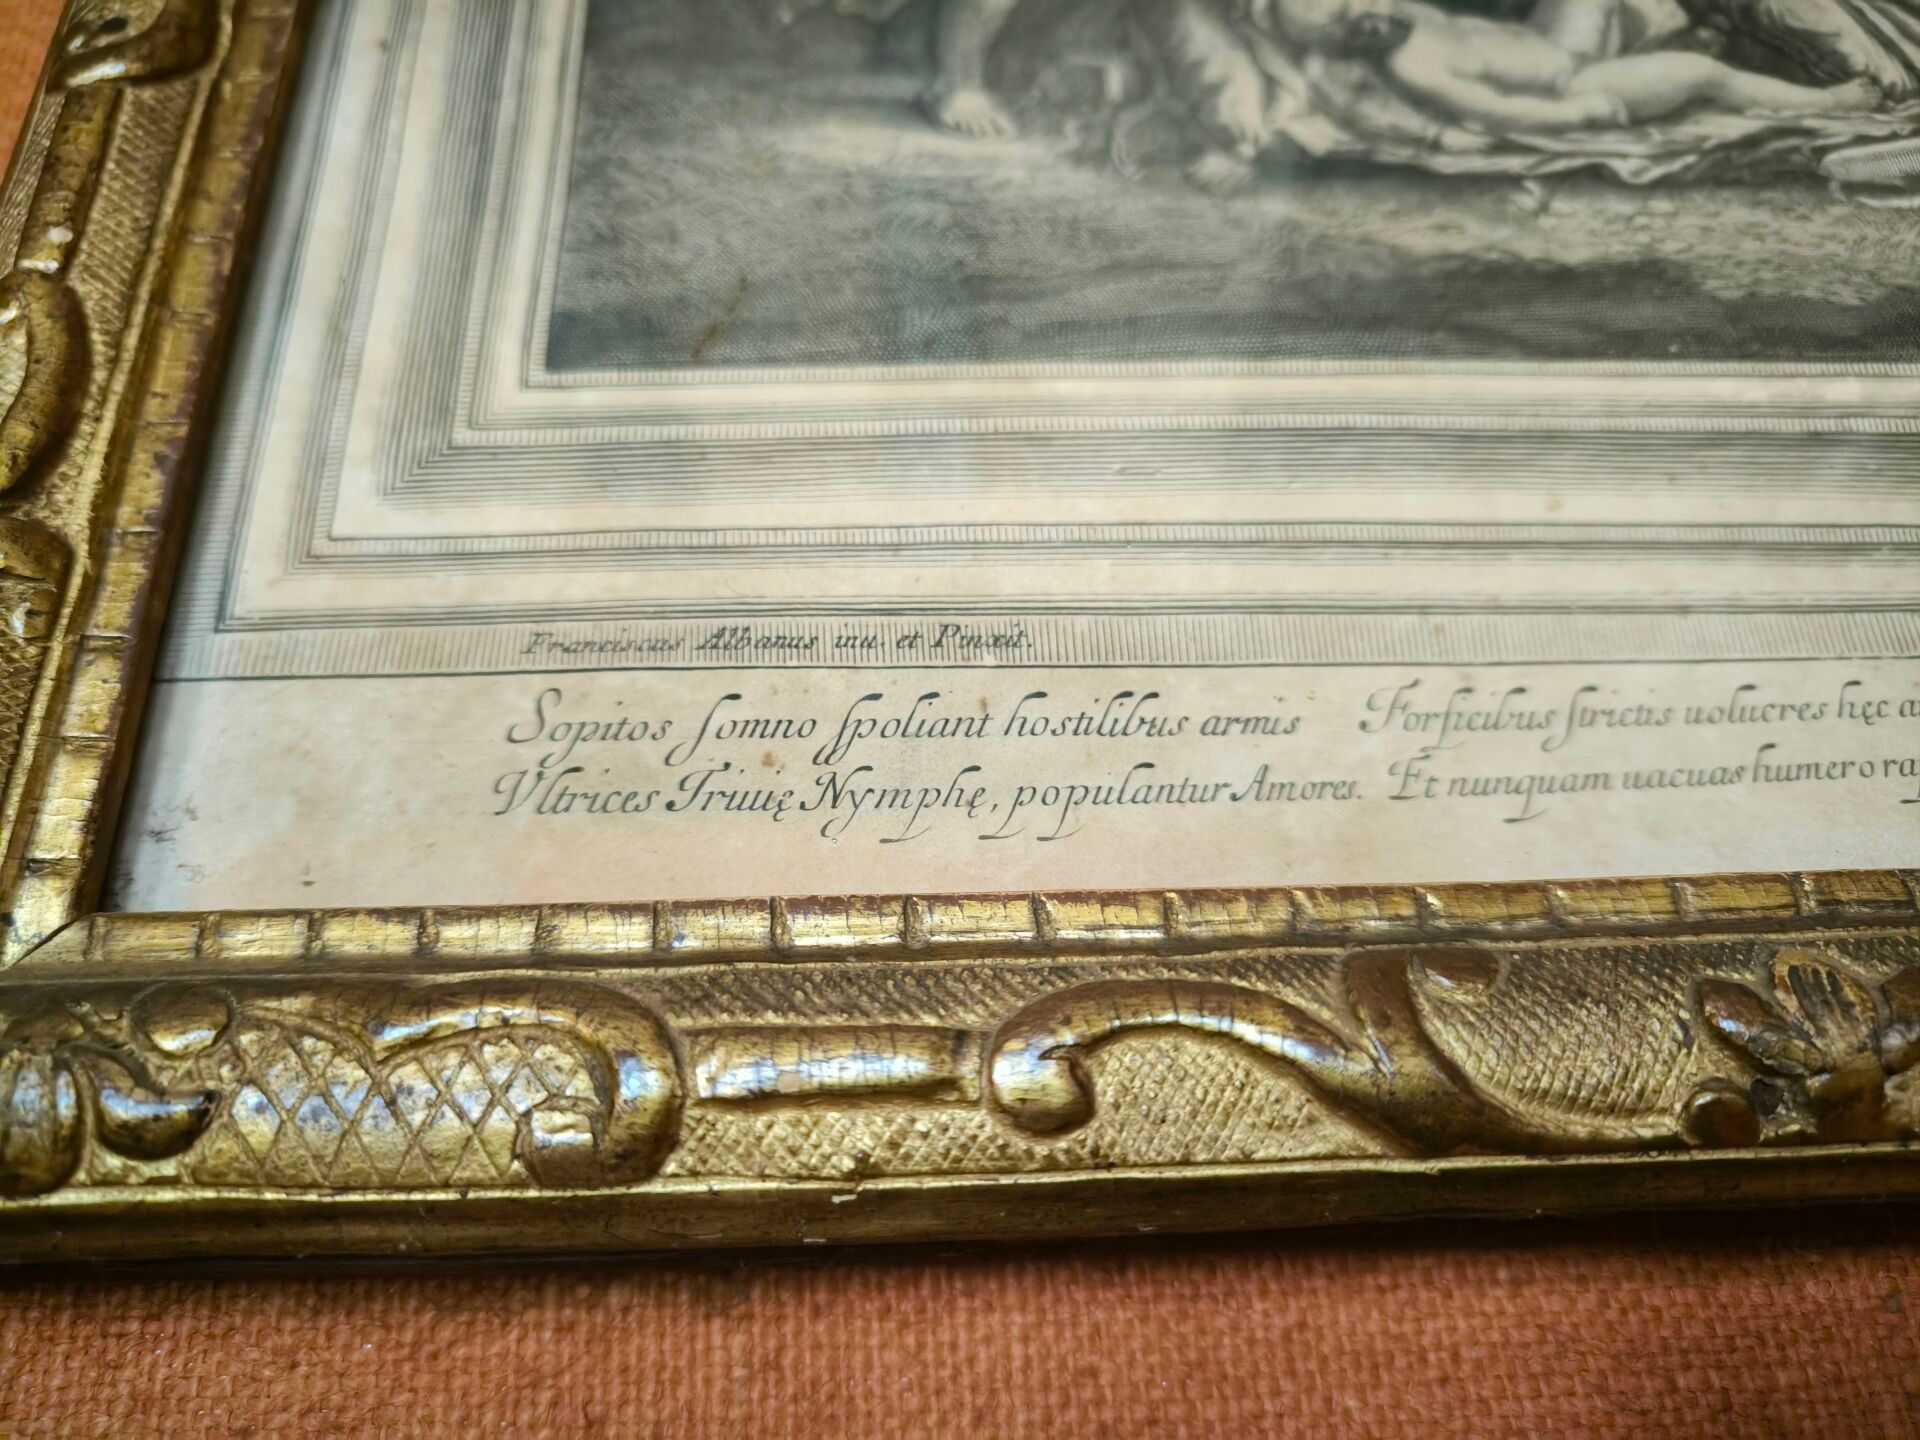 Franciscus Albanus inu. et Pinxit.
Sopitos ſomno ſpoliant hostilibus armis
Vltrices Triuię Nymphę, populantur Amores.
Forficibus ſtrictis uolucres hęc
Et nunquam uacuas humero